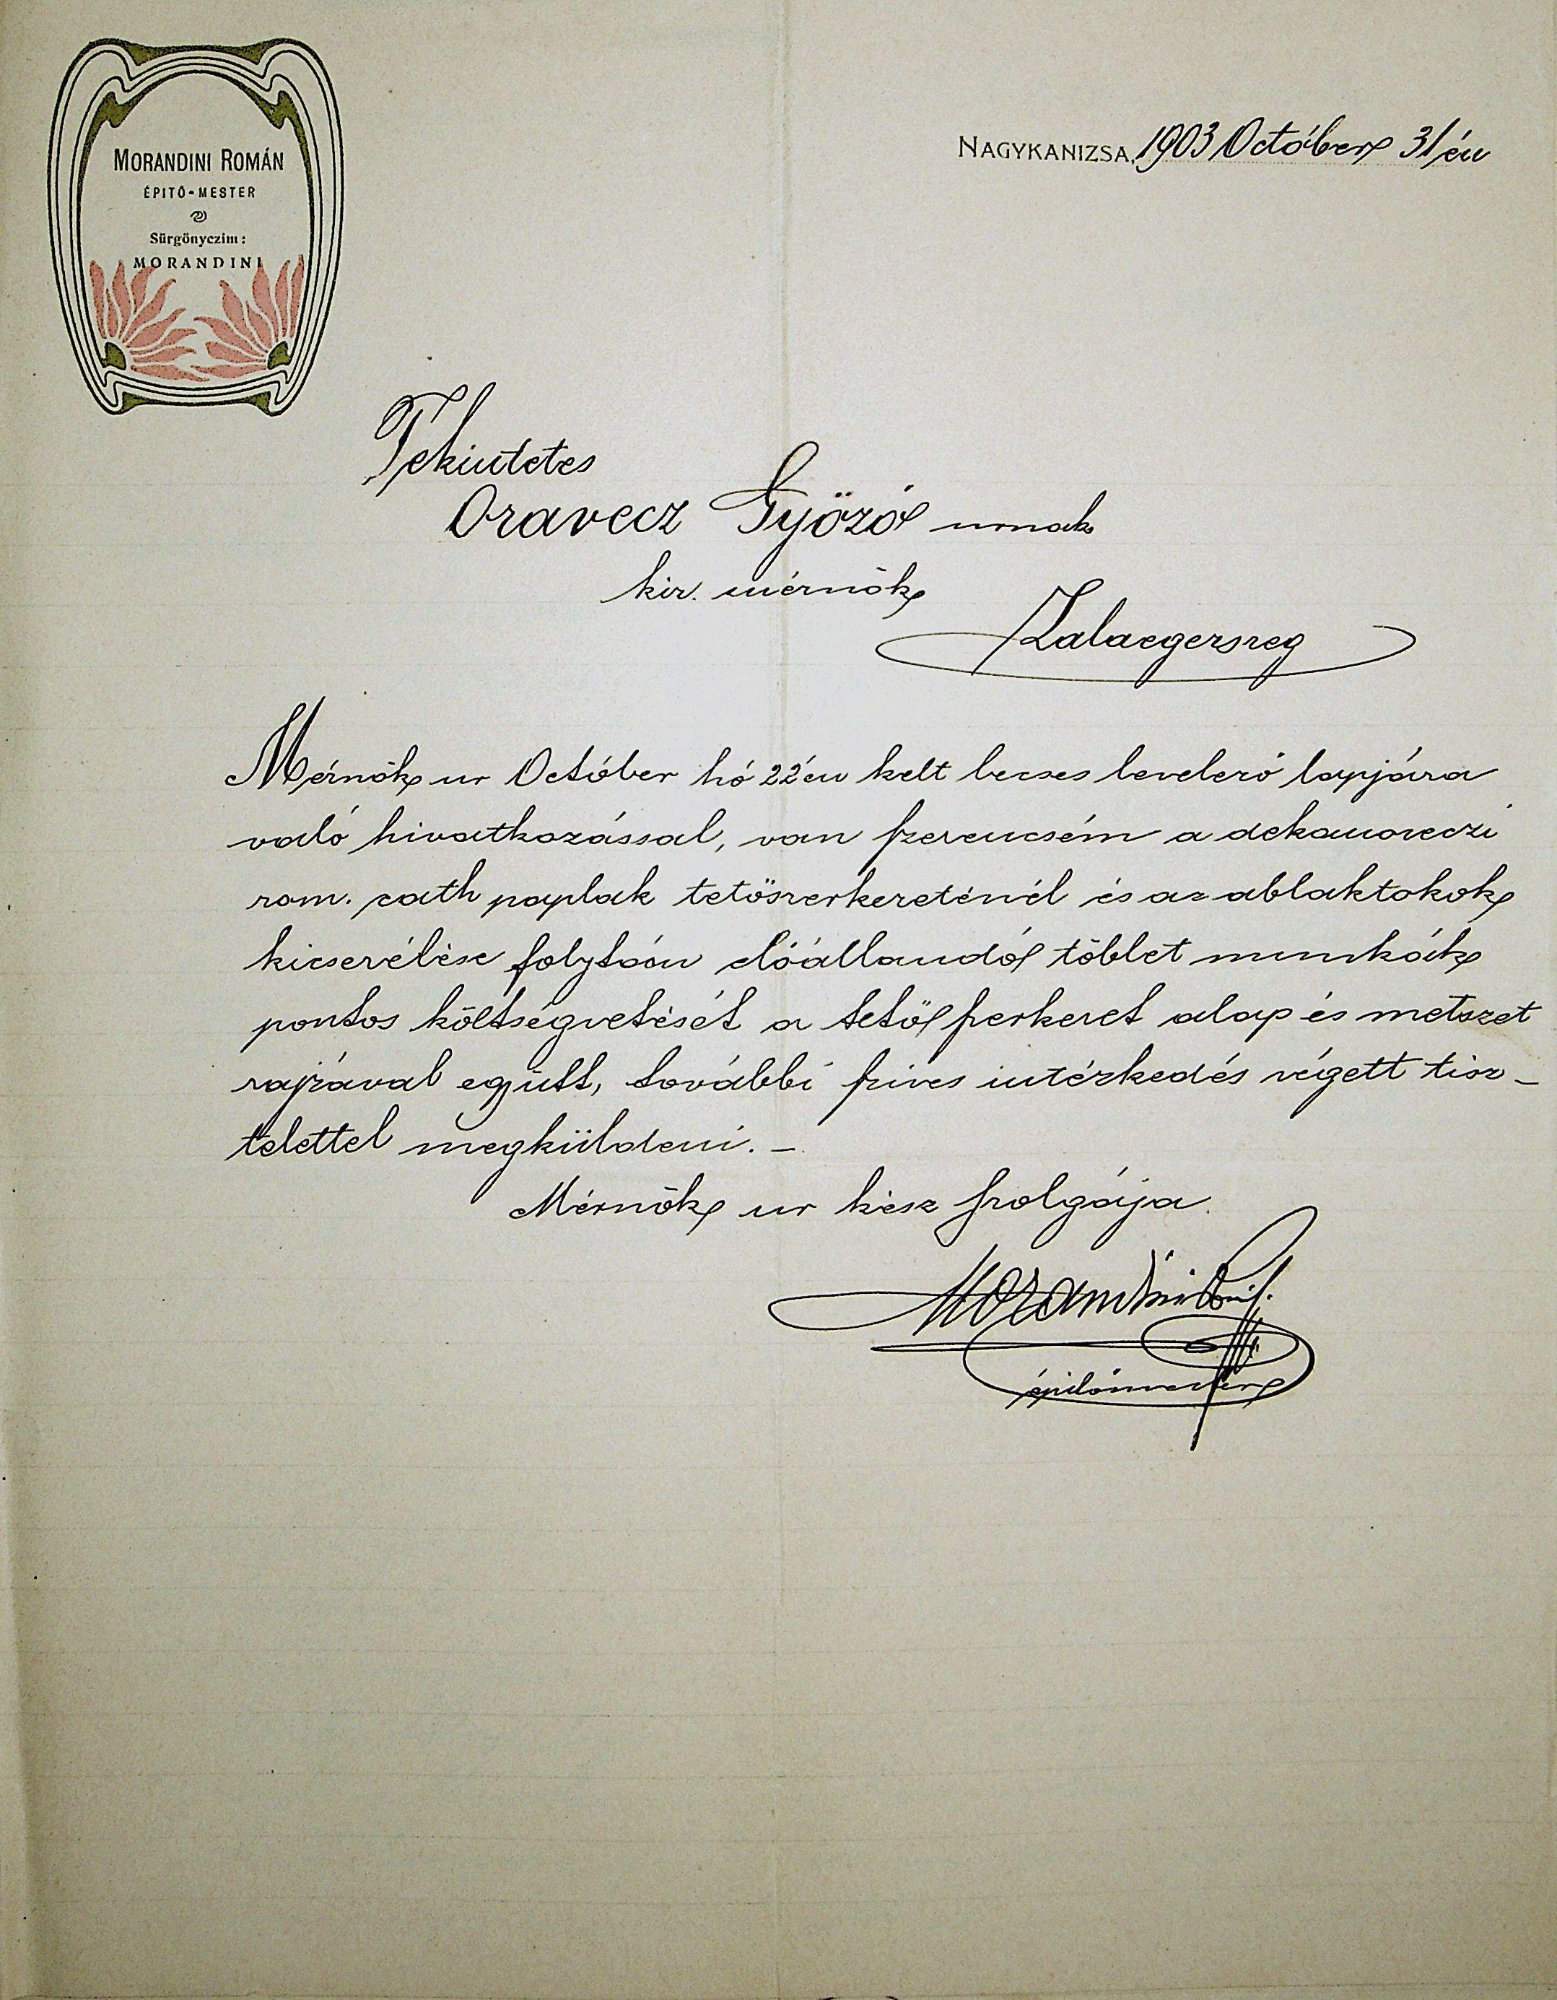 MORANDINI ROMÁN
ÉPITŐ-MESTER
Sürgönyczim:
MORANDINI
NAGYKANIZSA, 1903 Október 31én
Tekintetes
Oravecz Győző urnak
kir. mérnök
Zalaegerszeg
Mérnök ur Október hó 22én kelt becses levelező lapjára
való hivatkozással, van szerencsém a dekanoveczi
rom. cath paplak tetőszerkereténél és az ablaktokok
kicserélése folytán előállandó többlet munkák
pontos költségvetését a tető szerkeret alap és metszet
rajzával együtt, további szives intézkedés végett tisz-
telettel megküldeni. -
Mérnök ur kész szolgája.
Morandini
építőmester